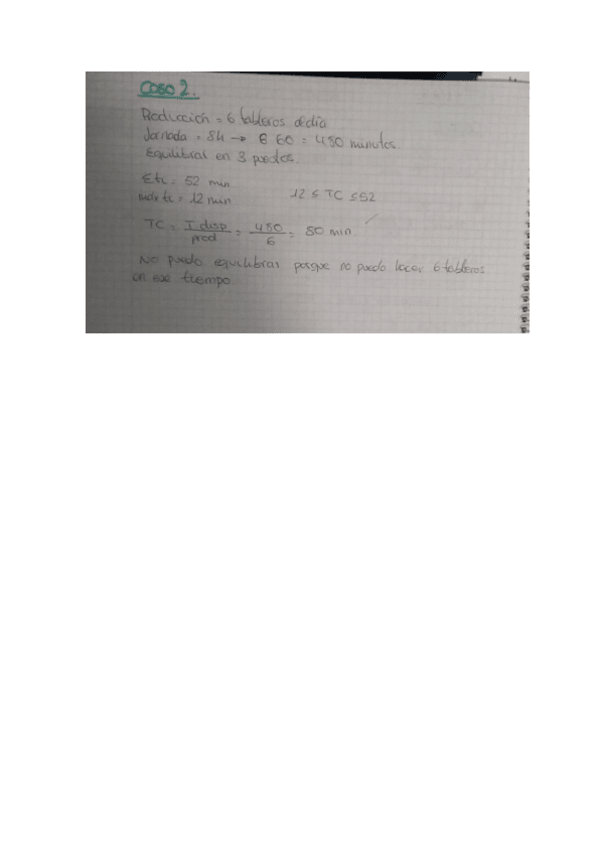 Caso 2.
Producción = 6 tableros al día
Jornada = 8h → 8 60 = 480 minutos.
Equilibrar en 3 puestos.
Σti = 52 min.
máx ti = 12 min
12 ≤ TC ≤ 52
TC = T disp / prod = 480 / 6 = 80 min
No puedo equilibrar porque no puedo hacer 6 tableros
en ese tiempo.